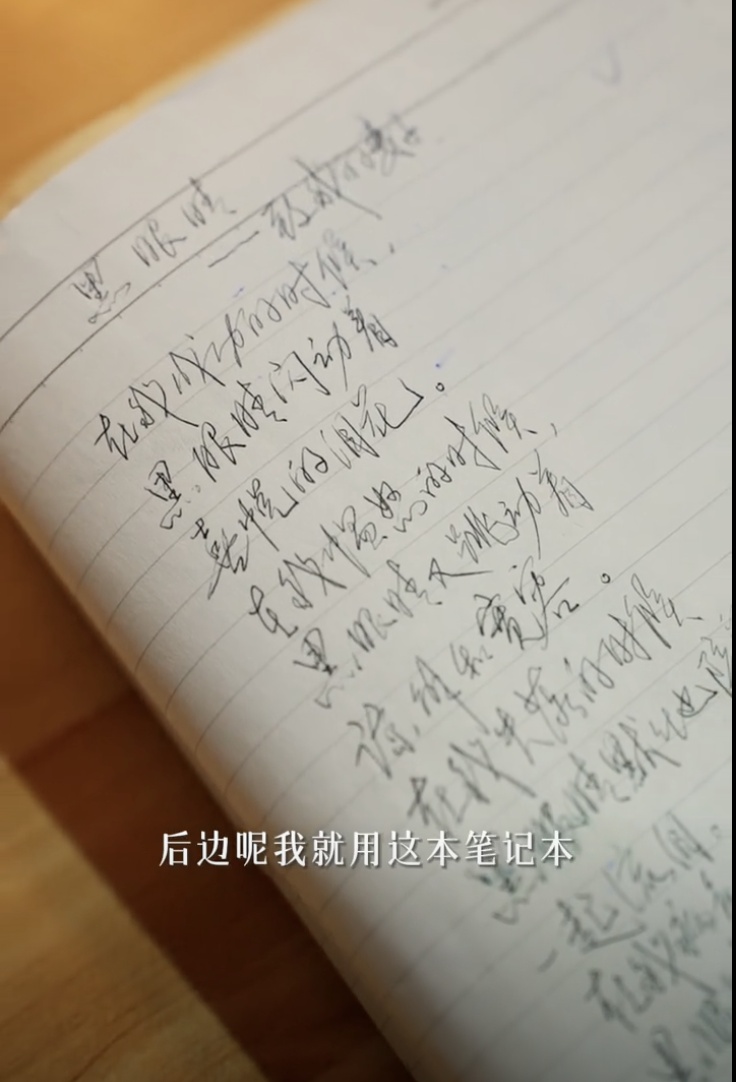 黑眼睛
——致我的妻子
在我成功的时候,
黑眼睛闪动着
喜悦的泪花。
在我愠怒的时候,
黑眼睛又跳动着
谅解和宽容。
在我失落的时候
黑眼睛默默地陪
一起
在我
后边呢我就用这本笔记本